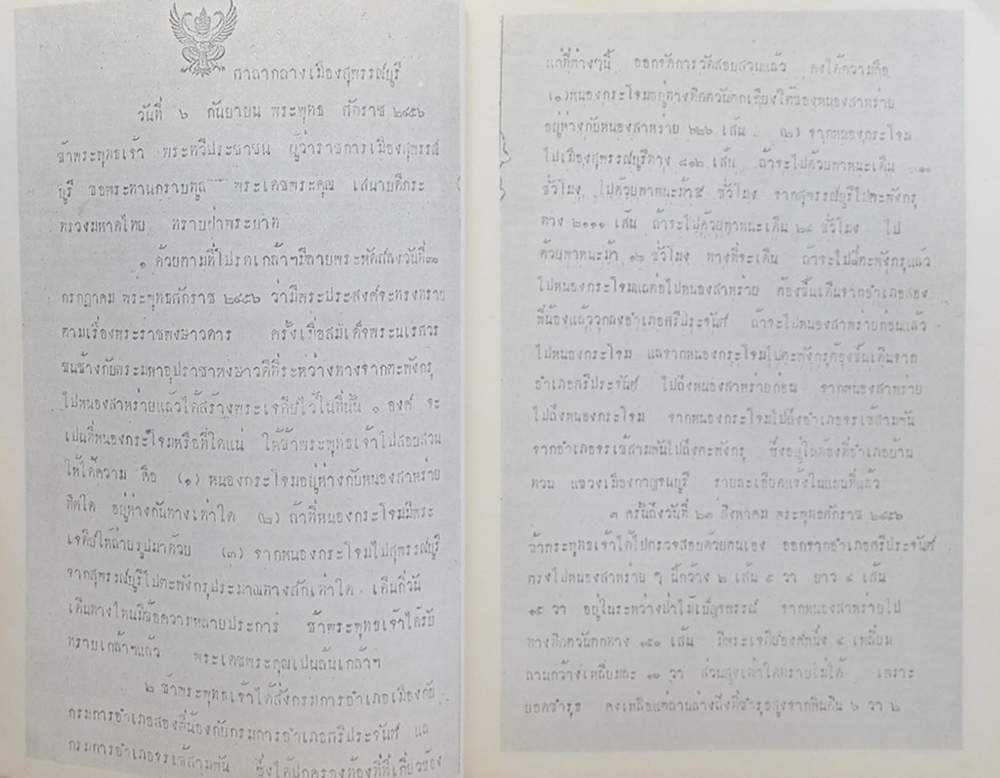 ศาลากลางเมืองสุพรรณ์บูรี
วันที่ ๖ กันยายน พระพุทธ ศักราช ๒๔๕๖
ข้าพระพุทธเจ้า พระทวีประชาชน ผู้ว่าราชการเมืองสุพรรณ์
บูรี ขอพระทานกราบทูล พระเดชพระคุณ เสนาบดีกระ
ทรวงมหาดไทย ทราบฝ่าพระบาท
๑ ด้วยตามที่โปรดเกล้าฯมีลายพระหัดถ์ลงวันที่๓๐
กรกฎาคม พระพุทธศักราช ๒๔๕๖ ว่ามีพระประสงค์จะทรงทราบ
ตามเรื่องพระราชพงษาวดาร ครั้งเมื่อสมเด็จพระนเรศวร
ชนช้างกับพระมหาอุปราชาหงษาวดีที่ระหว่างทางจากตะพังกรุ
ไปหนองสาหร่ายแล้วได้สร้างพระเจดีย์ไว้ในที่นั้น ๑ องค์ จะ
เป็นที่หนองกระโจมหรือที่ใดแน่ ให้ข้าพระพุทธเจ้าไปสอบสวน
ให้ได้ความ คือ (๑) หนองกระโจมอยู่ห่างกับหนองสาหร่าย
ทิศใด อยู่ห่างกันทางเท่าใด (๒) ถ้าที่หนองกระโจมมีพระ
เจดีย์ให้ถ่ายรูปมาด้วย (๓) จากหนองกระโจมไปสุพรรณ์บูรี
จากสุพรรณ์บูรีไปตะพังกรุประมาณทางสักเท่าใด เดินกี่วัน
เดินทางไหนมีข้อความหลายประการ ข้าพระพุทธเจ้าได้รับ
ทราบเกล้าฯแล้ว พระเดชพระคุณเปนล้นเกล้าฯ
๒ ข้าพระพุทธเจ้าได้สั่งกรมการอำเภอเมืองกับ
กรมการอำเภอสองพี่น้องกับกรมการอำเภอศรีประจันต์ แล
กรมการอำเภอจรเข้สามพัน ซึ่งได้ปกครองท้องที่ที่เกี่ยวข้อง
แก่ที่ต่างๆนี้ ออกรดิการวัดสอบสวนแล้ว คงได้ความคือ
(๑)หนองกระโจมอยู่ทางทิศตวันตกเฉียงใต้ของหนองสาหร่าย
อยู่ห่างกับหนองสาหร่าย ๖๒๖ เส้น (๒) จากหนองกระโจม
ไปเมืองสุพรรณ์บูรีทาง ๘๑๒ เส้น ถ้าจะไปด้วยพาหนะเดิน
ชั่วโมง ไปด้วยพาหนะม้า๕ ชั่วโมง จากสุพรรณ์บูรีไปตะพังกรุ
ทาง ๒๑๑๑ เส้น ถ้าจะไปด้วยพาหนะเดิน ๒๔ ชั่วโมง ไป
ด้วยพาหนะม้า ๑๒ ชั่วโมง ทางที่จะเดิน ถ้าจะไปตะพังกรุแล้ว
ไปหนองกระโจมแลต่อไปหนองสาหร่าย ต้องขึ้นเดินจากอำเภอสอง
พี่น้องแล้ววกลงอำเภอศรีประจันต์ ถ้าจะไปหนองสาหร่ายก่อนแล้ว
ไปหนองกระโจม แลจากหนองกระโจมไปตะพังกรุต้องขึ้นเดินจาก
อำเภอศรีประจันต์ ไปถึงหนองสาหร่ายก่อน จากหนองสาหร่าย
ไปถึงหนองกระโจม จากหนองกระโจมไปถึงอำเภอจรเข้สามพัน
จากอำเภอจรเข้สามพันไปถึงตะพังกรุ ซึ่งอยู่ในท้องที่อำเภอบ้าน
ทวน แขวงเมืองกาญจนบูรี รายละเอียดแจ้งในแผนที่แล้ว
๓ ครั้นถึงวันที่ ๒๓ สิงหาคม พระพุทธศักราช ๒๔๕๖
ข้าพระพุทธเจ้าได้ไปตรวจสอบด้วยตนเอง ออกจากอำเภอศรีประจันต์
ตรงไปหนองสาหร่าย ๆ นี้กว้าง ๒ เส้น ๕ วา ยาว ๔ เส้น
๑๕ วา อยู่ในระหว่างป่าไม้เบ็ญพรรณ์ จากหนองสาหร่ายไป
ทางทิศตวันตกทาง ๑๕๐ เส้น มีพระเจดีย์องค์หนึ่ง ๔ เหลี่ยม
ฐานกว้างเหลี่ยมละ ๑๐ วา ส่วนสูงเท่าใดทราบไม่ได้ เพราะ
ยอดชำรุธ คงเหลือแต่ฐานล่างถึงที่ชำรุธสูงจากพื้นดิน ๖ วา ๒